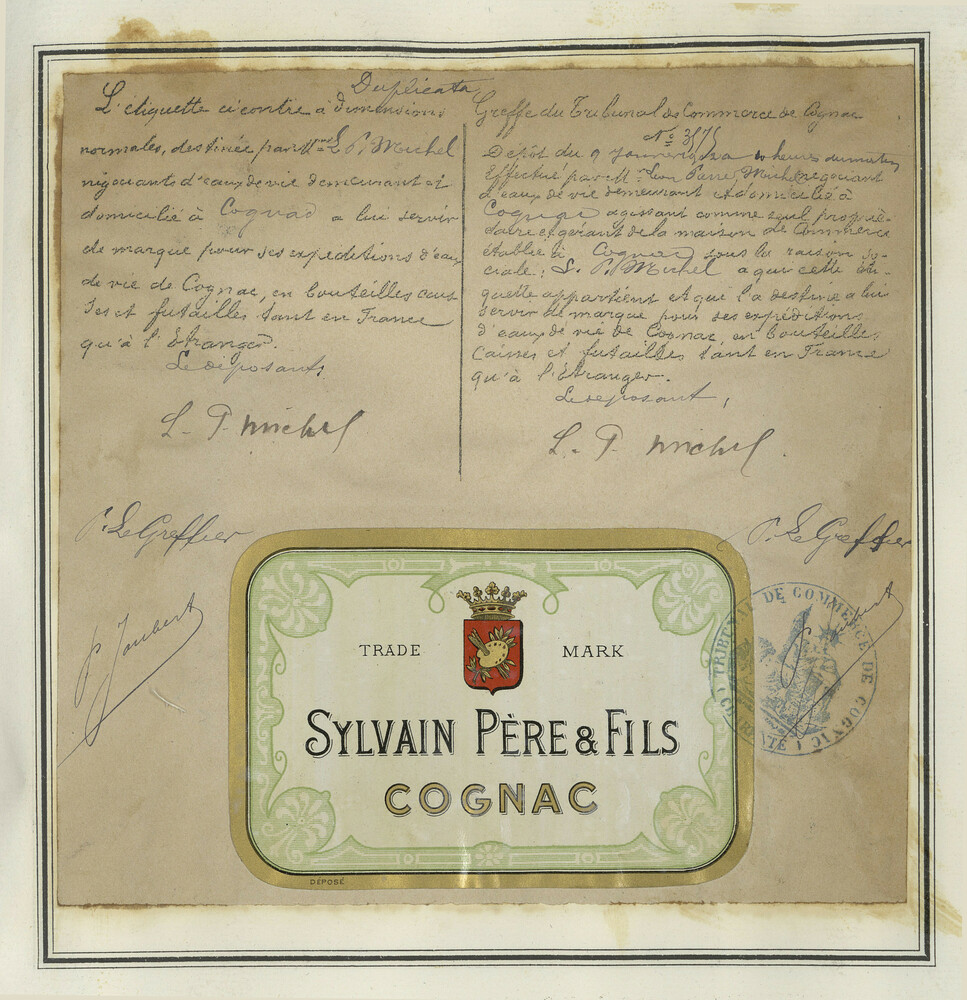 Duplicata
L'étiquette ci contre à dimensions
normales, destinée par L. P. Michel
négociants d'eaux de vie demeurant et
domicilié à Cognac a lui servir
de marque pour ses expéditions d'eau
de vie de Cognac, en bouteilles cais
ses et futailles tant en France
qu'à l'Etranger.
Le déposant,
L. P. Michel
P. Le Greffier
P Joubert
Greffe du Tribunal de Commerce de Cognac
Dépôt du 9 Janvier heures du matin
Effectué par Mr Léon Pierre Michel négociant
d'eaux de vie demeurant et domicilié à
Cognac agissant comme seul proprié-
taire et gérant de la maison de Commerce
établie à Cognac sous la raison so-
ciale: L. P. Michel a qui cette éti-
quette appartient et qui l'a destinée a lui
servir de marque pour ses expéditions
d'eaux de vie de Cognac, en bouteilles
Caisses et futailles tant en France
qu'à l'Etranger.
Le déposant,
L. P. Michel
P. Le Greffier
P Joubert
TRIBUNAL DE COMMERCE DE COGNAC
(CHARENTE)
TRADE MARK
SYLVAIN PÈRE & FILS
COGNAC
DÉPOSÉ